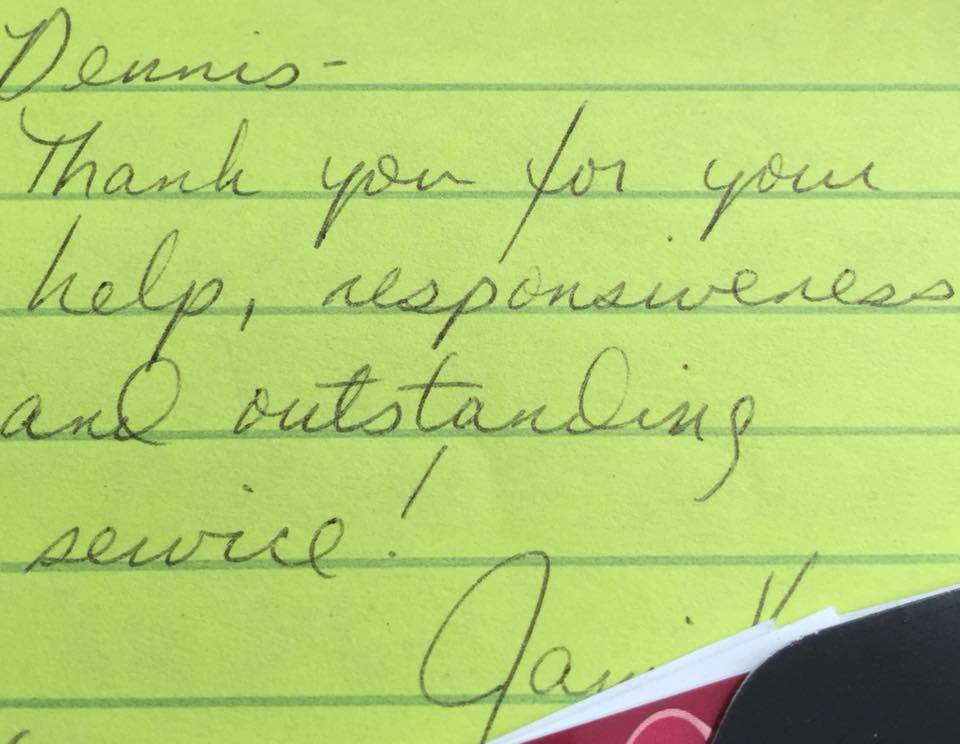 Dennis-
Thank you for your
help, responsiveness
and outstanding
service!